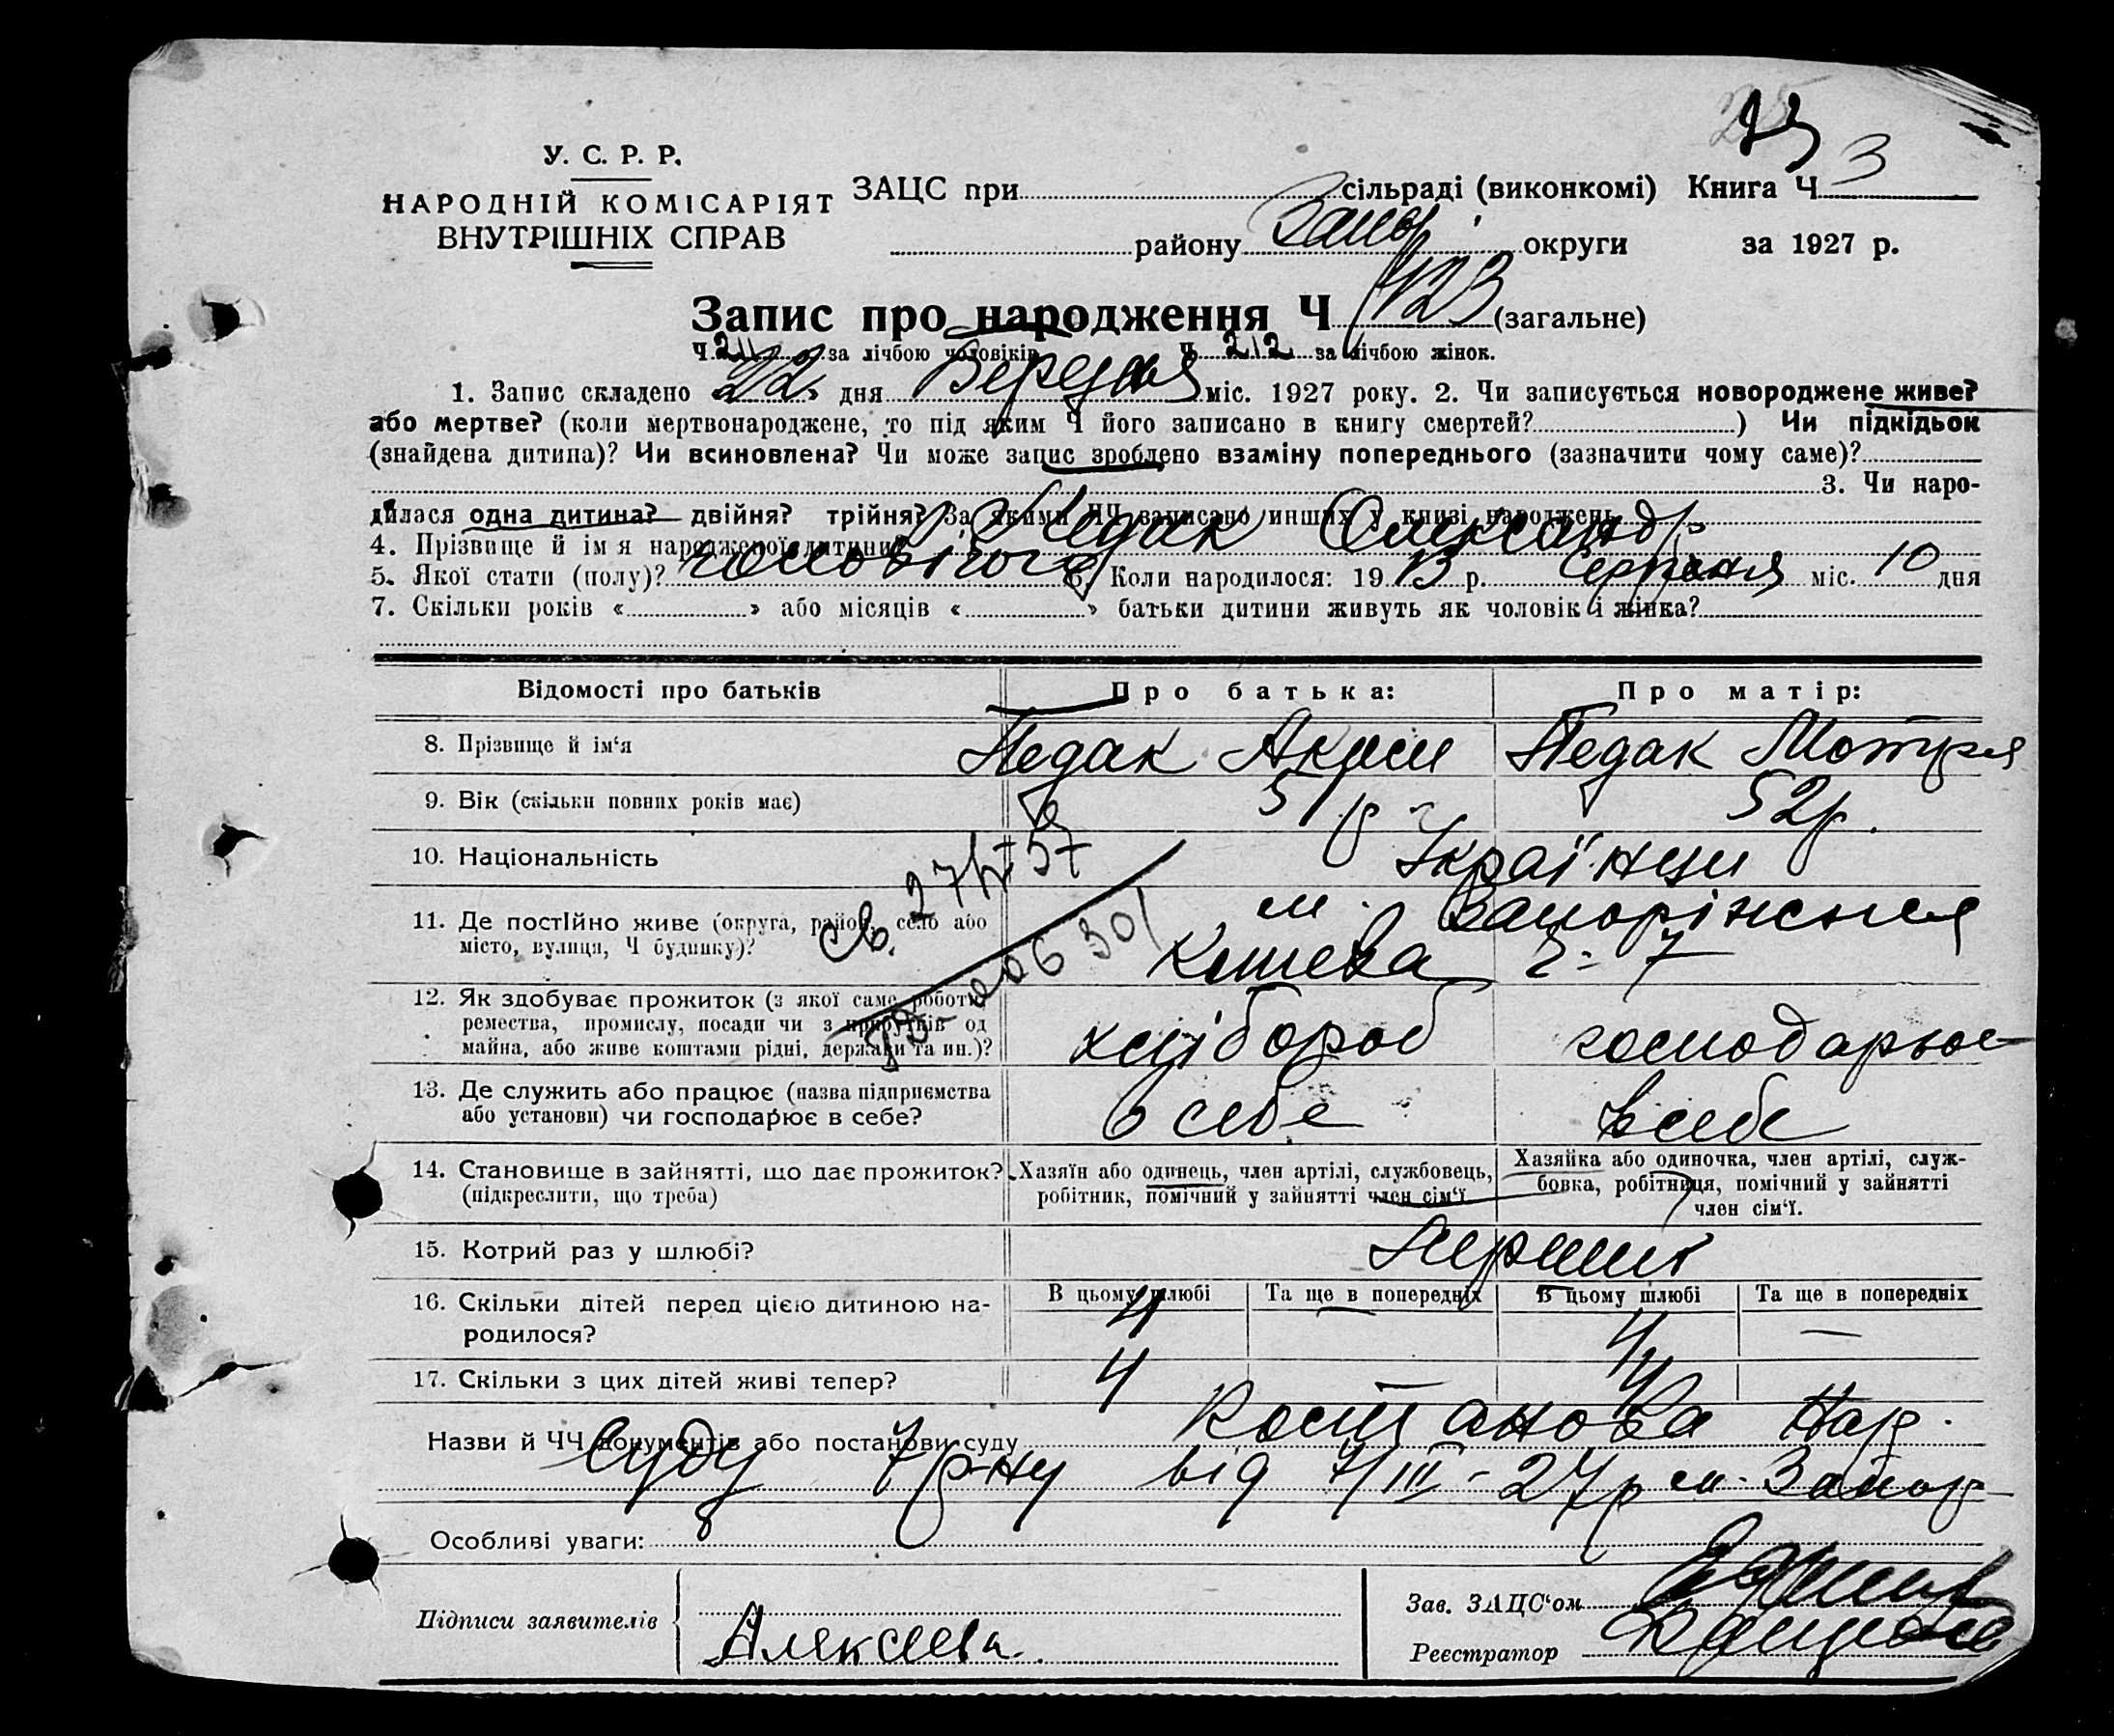 3
У. С. Р. Р.
НАРОДНІЙ КОМІСАРІЯТ
ВНУТРІШНІХ СПРАВ
ЗАЦС при сільраді (виконкомі) Книга Ч 3
району Запор. округи за 1927 р.
Запис про народження Ч 423 (загальне)
Ч 211 за лічбою чоловіків Ч 212 за лічбою жінок.
1. Запис складено «22» дня Березня міс. 1927 року. 2. Чи записується новороджене живе?
або мертве? (коли мертвонароджене, то під яким Ч його записано в книгу смертей? ) Чи підкідьок
(знайдена дитина)? Чи всиновлена? Чи може запис зроблено взаміну попереднього (зазначити чому саме)?
3. Чи наро-
дилася одна дитина? двійня? трійня? За якими ЧЧ записано инших у книзі народжень
4. Прізвище й ім'я народженої дитини Педак Олександр
5. Якої стати (полу)? чоловічого 6. Коли народилося: 1913 р. Серпня міс. 10 дня
7. Скільки років « » або місяців « » батьки дитини живуть як чоловік і жінка?
Відомості про батьків Про батька: Про матір:
8. Прізвище й ім'я Педак Аким Педак Мотря
9. Вік (скільки повних років має) 51 р. 52 р.
10. Національність Українци
11. Де постІйно живе (округа, район, село або м. Запоріжжя
місто, вулиця, Ч будинку)? Кошева 7
12. Як здобуває прожиток (з якої саме роботи,
ремества, промислу, посади чи з прибутків од хлібороб господарює
майна, або живе коштами рідні, держави та ин.)?
13. Де служить або працює (назва підприємства
або установи) чи господарює в себе? в себе в себе
14. Становище в зайнятті, що дає прожиток? Хазяїн або одинець, член артілі, службовець, Хазяйка або одиночка, член артілі, служ-
(підкреслити, що треба) робітник, помічний у зайнятті член сім'ї бовка, робітниця, помічний у зайнятті
член сім'ї.
15. Котрий раз у шлюбі? Перший
16. Скільки дітей перед цією дитиною на- В цьому шлюбі Та ще в попередніх В цьому шлюбі Та ще в попередніх
родилося? 4 — 4 —
17. Скільки з цих дітей живі тепер? 4 — 4
Назви й ЧЧ документів або постанови суду Постанова Нар.
Суду 7 р-ну від 7/III - 27 р м. Запор
Особливі уваги:
Підписи заявителів Алексеева.
Зав. ЗАЦС'ом
Реєстратор